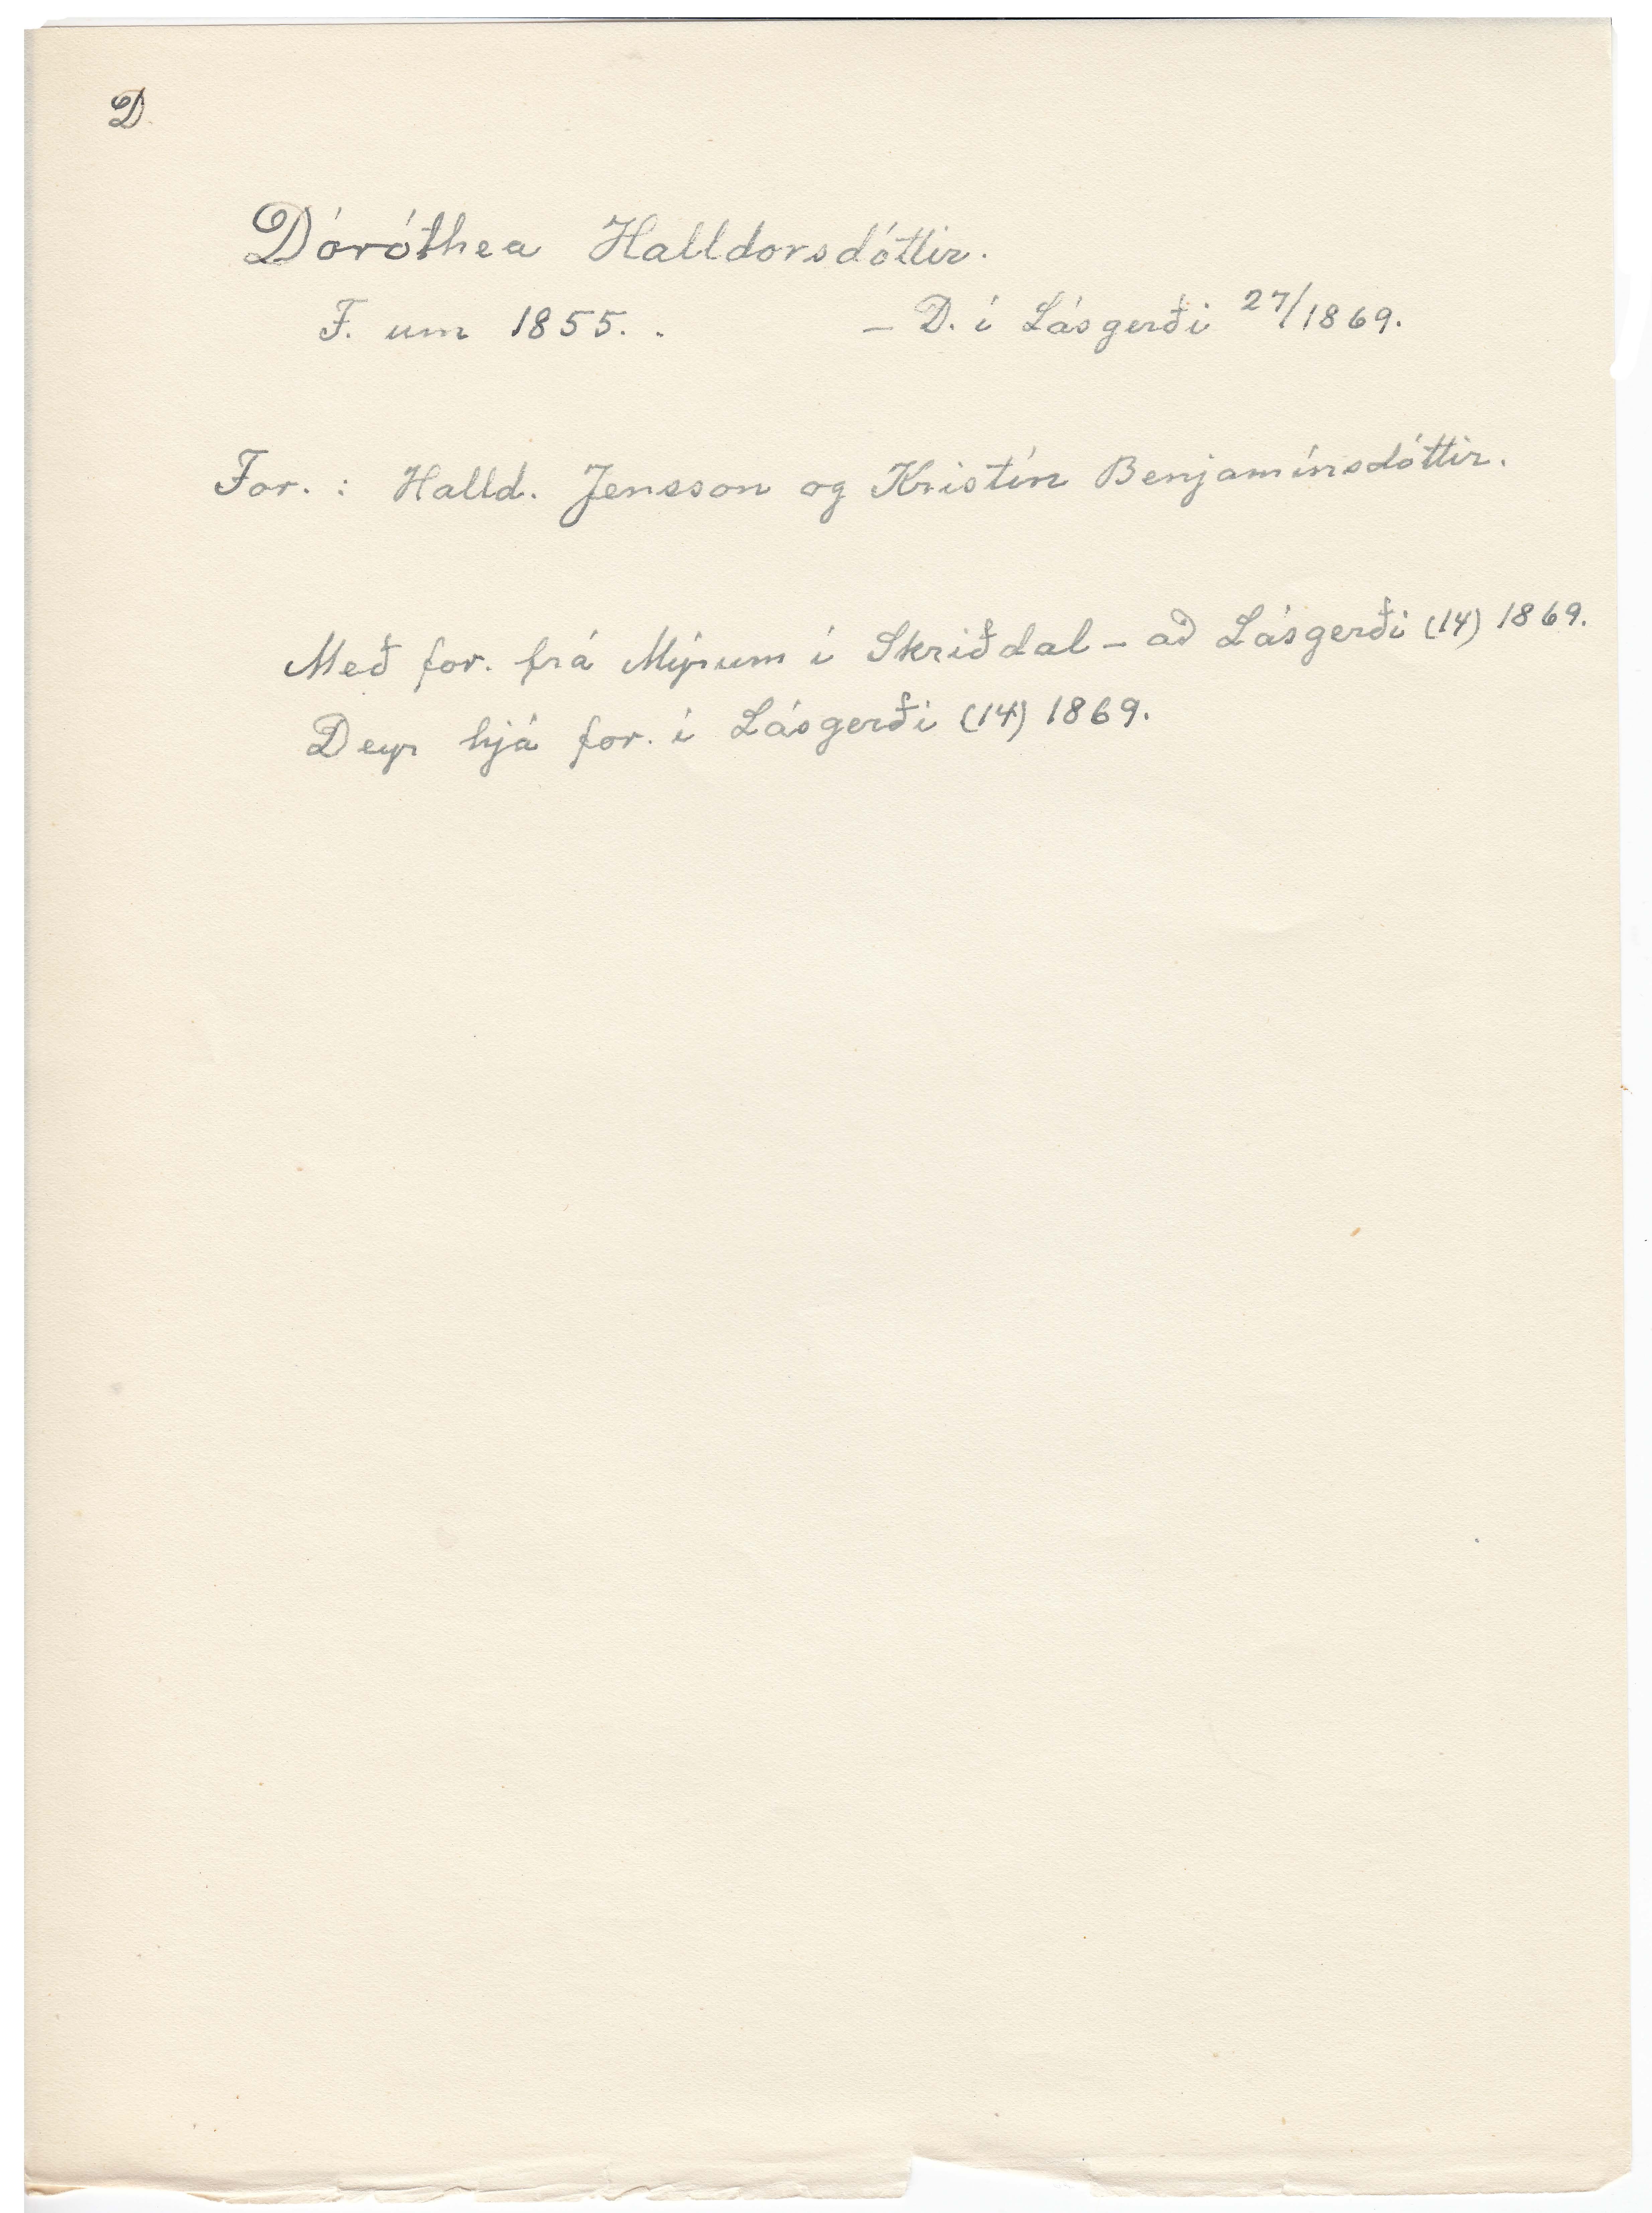 D.
Dóróthea Halldorsdóttir.
F. um 1855. . – D. í Lásgerði 27/1869.
For. : Halld. Jensson og Kristín Benjamínsdóttir.
Með for. frá Mýrum í Skriðdal – að Lásgerði (14) 1869.
Deyr hjá for. í Lásgerði (14) 1869.